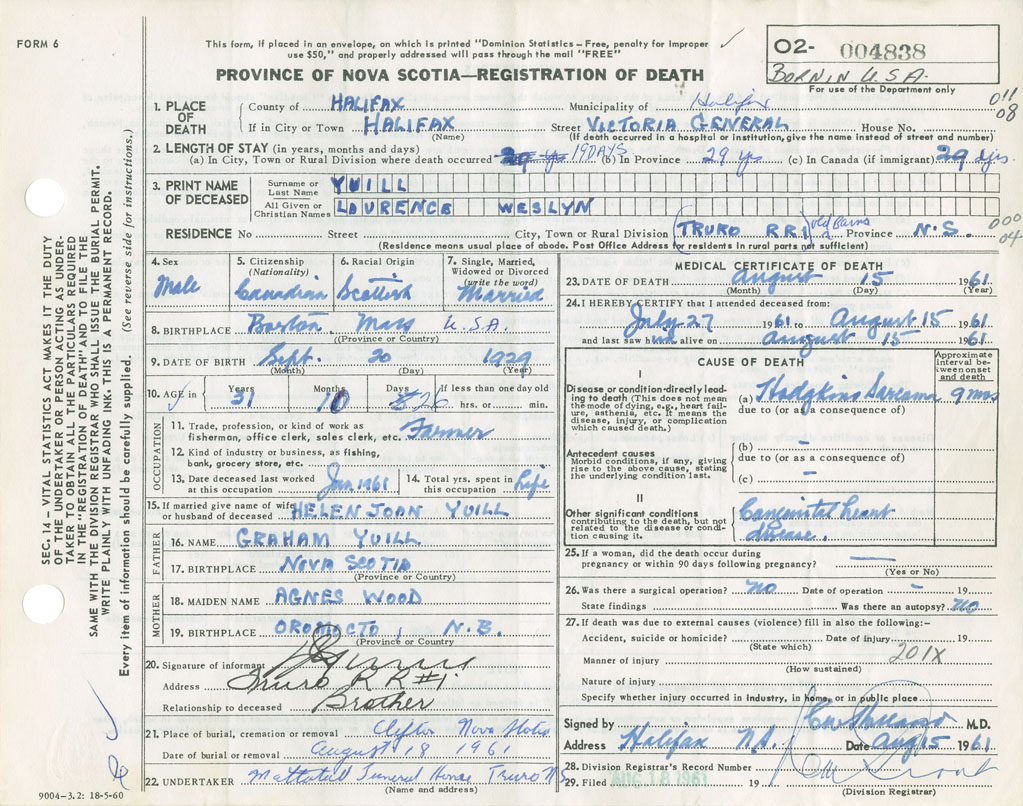 FORM 6
This form, if placed in an envelope, on which is printed "Dominion Statistics – Free, penalty for improper
use $50," and properly addressed will pass through the mail "FREE"
✓
O2- 004838
BORN IN U.S.A.
For use of the Department only
PROVINCE OF NOVA SCOTIA—REGISTRATION OF DEATH
011
08
1. PLACE OF DEATH
County of HALIFAX Municipality of Halifax
If in City or Town HALIFAX Street VICTORIA GENERAL House No.
(Name) (If death occurred in a hospital or institution, give the name instead of street and number)
2. LENGTH OF STAY (in years, months and days)
(a) In City, Town or Rural Division where death occurred 19 DAYS (b) In Province 29 yrs (c) In Canada (if immigrant) 29 yrs.
3. PRINT NAME OF DECEASED
Surname or Last Name YUILL
All Given or Christian Names LAURENCE WESLYN
RESIDENCE No. Street City, Town or Rural Division (TRURO RR1) old Barns Province N.S.
000
04
(Residence means usual place of abode. Post Office Address for residents in rural parts not sufficient)
4. Sex Male
5. Citizenship (Nationality) Canadian
6. Racial Origin Scottish
7. Single, Married, Widowed or Divorced (write the word) Married
8. BIRTHPLACE Boston Mass U.S.A.
(Province or Country)
9. DATE OF BIRTH Sept. 20 1929
(Month) (Day) (Year)
10. AGE in Years 31 Months 10 Days 26 If less than one day old hrs. or min.
OCCUPATION
11. Trade, profession, or kind of work as
fisherman, office clerk, sales clerk, etc. Farmer
12. Kind of industry or business, as fishing,
bank, grocery store, etc.
13. Date deceased last worked
at this occupation Jan. 1961
14. Total yrs. spent in
this occupation Life
15. If married give name of wife
or husband of deceased HELEN JOAN YUILL
FATHER
16. NAME GRAHAM YUILL
17. BIRTHPLACE NOVA SCOTIA
(Province or Country)
MOTHER
18. MAIDEN NAME AGNES WOOD
19. BIRTHPLACE OROMOCTO, N.B.
(Province or Country)
20. Signature of informant
Address Truro R R #1.
Relationship to deceased Brother
21. Place of burial, cremation or removal Clifton Nova Scotia
Date of burial or removal August 18 1961
22. UNDERTAKER Mattatall Funeral Home Truro N.S
(Name and address)
MEDICAL CERTIFICATE OF DEATH
23. DATE OF DEATH August 15 1961
(Month) (Day) (Year)
24. I HEREBY CERTIFY that I attended deceased from:
July 27 1961 to August 15 1961
and last saw him alive on August 15 1961
CAUSE OF DEATH
Approximate interval between onset and death
I
Disease or condition directly leading
to death (This does not mean
the mode of dying, e.g., heart failure,
asthenia, etc. It means the
disease, injury, or complication
which caused death.)
(a) Hodgkins Sarcoma 9 mos
due to (or as a consequence of)
Antecedent causes
Morbid conditions, if any, giving
rise to the above cause, stating
the underlying condition last.
(b) –
due to (or as a consequence of)
(c) –
II
Other significant conditions
contributing to the death, but not
related to the disease or condition
causing it.
Congenital heart
disease.
25. If a woman, did the death occur during
pregnancy or within 90 days following pregnancy? —
(Yes or No)
26. Was there a surgical operation? NO Date of operation – 19
State findings Was there an autopsy? NO
27. If death was due to external causes (violence) fill in also the following:–
Accident, suicide or homicide? Date of injury 19
(State which)
201X
Manner of injury
(How sustained)
Nature of injury
Specify whether injury occurred in Industry, in home, or in public place
Signed by M.D.
Address Halifax N.S. Date Aug 15 1961
28. Division Registrar's Record Number
29. Filed AUG 18 1961 19
(Division Registrar)
SEC. 14 – VITAL STATISTICS ACT MAKES IT THE DUTY
OF THE UNDERTAKER OR PERSON ACTING AS UNDERTAKER
TO OBTAIN ALL THE PARTICULARS REQUIRED
IN THE "REGISTRATION OF DEATH" AND TO FILE THE
SAME WITH THE DIVISION REGISTRAR WHO SHALL ISSUE THE BURIAL PERMIT.
WRITE PLAINLY WITH UNFADING INK. THIS IS A PERMANENT RECORD.
Every item of information should be carefully supplied. (See reverse side for instructions.)
9004–3.2: 18-5-60